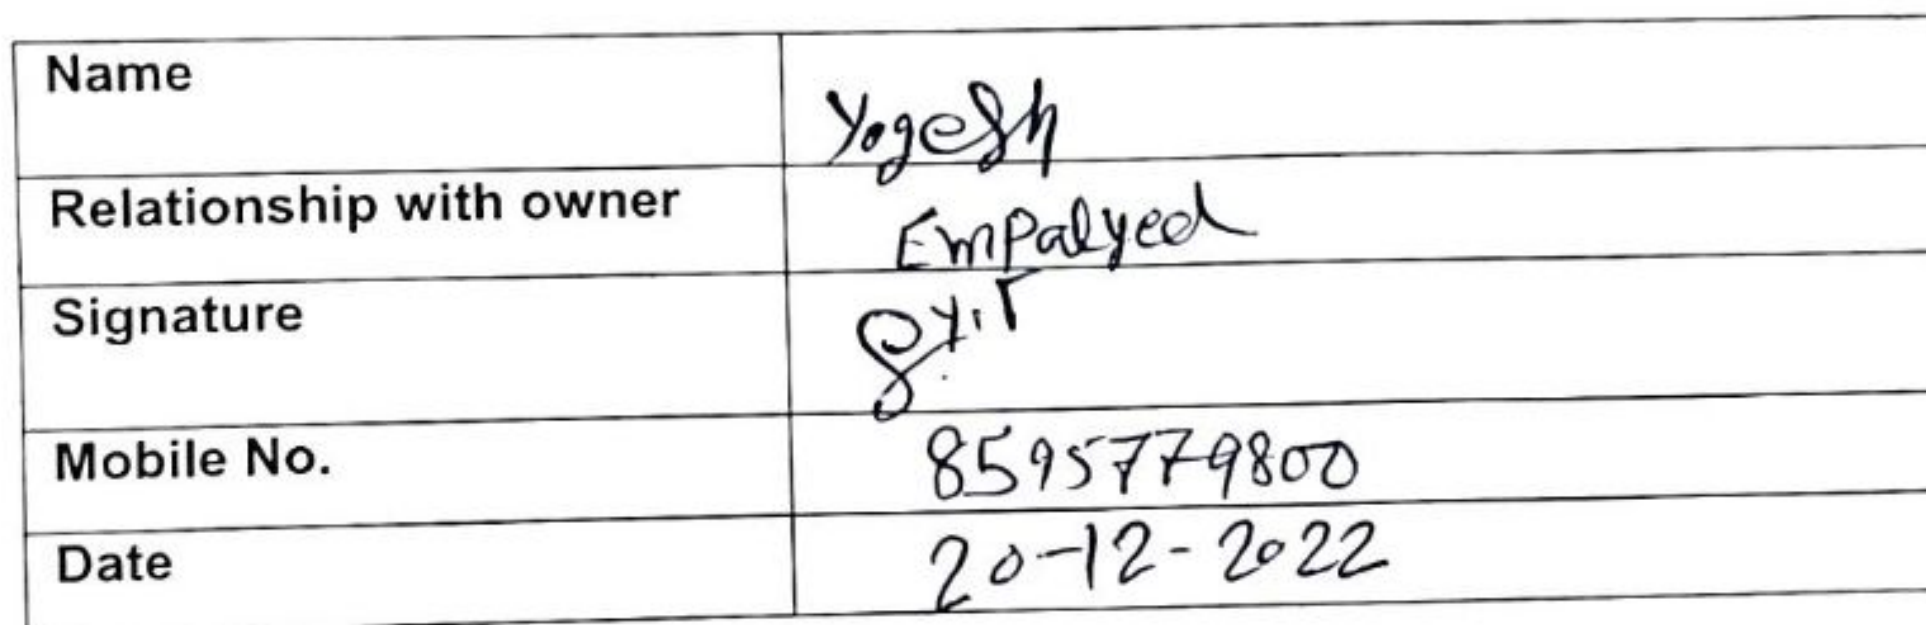 Name Yogesh
Relationship with owner Empalyed
Signature
Mobile No. 8595779800
Date 20-12-2022